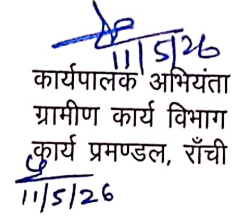 11/5/26
कार्यपालक अभियंता
ग्रामीण कार्य विभाग
कार्य प्रमण्डल, राँची
11/5/26